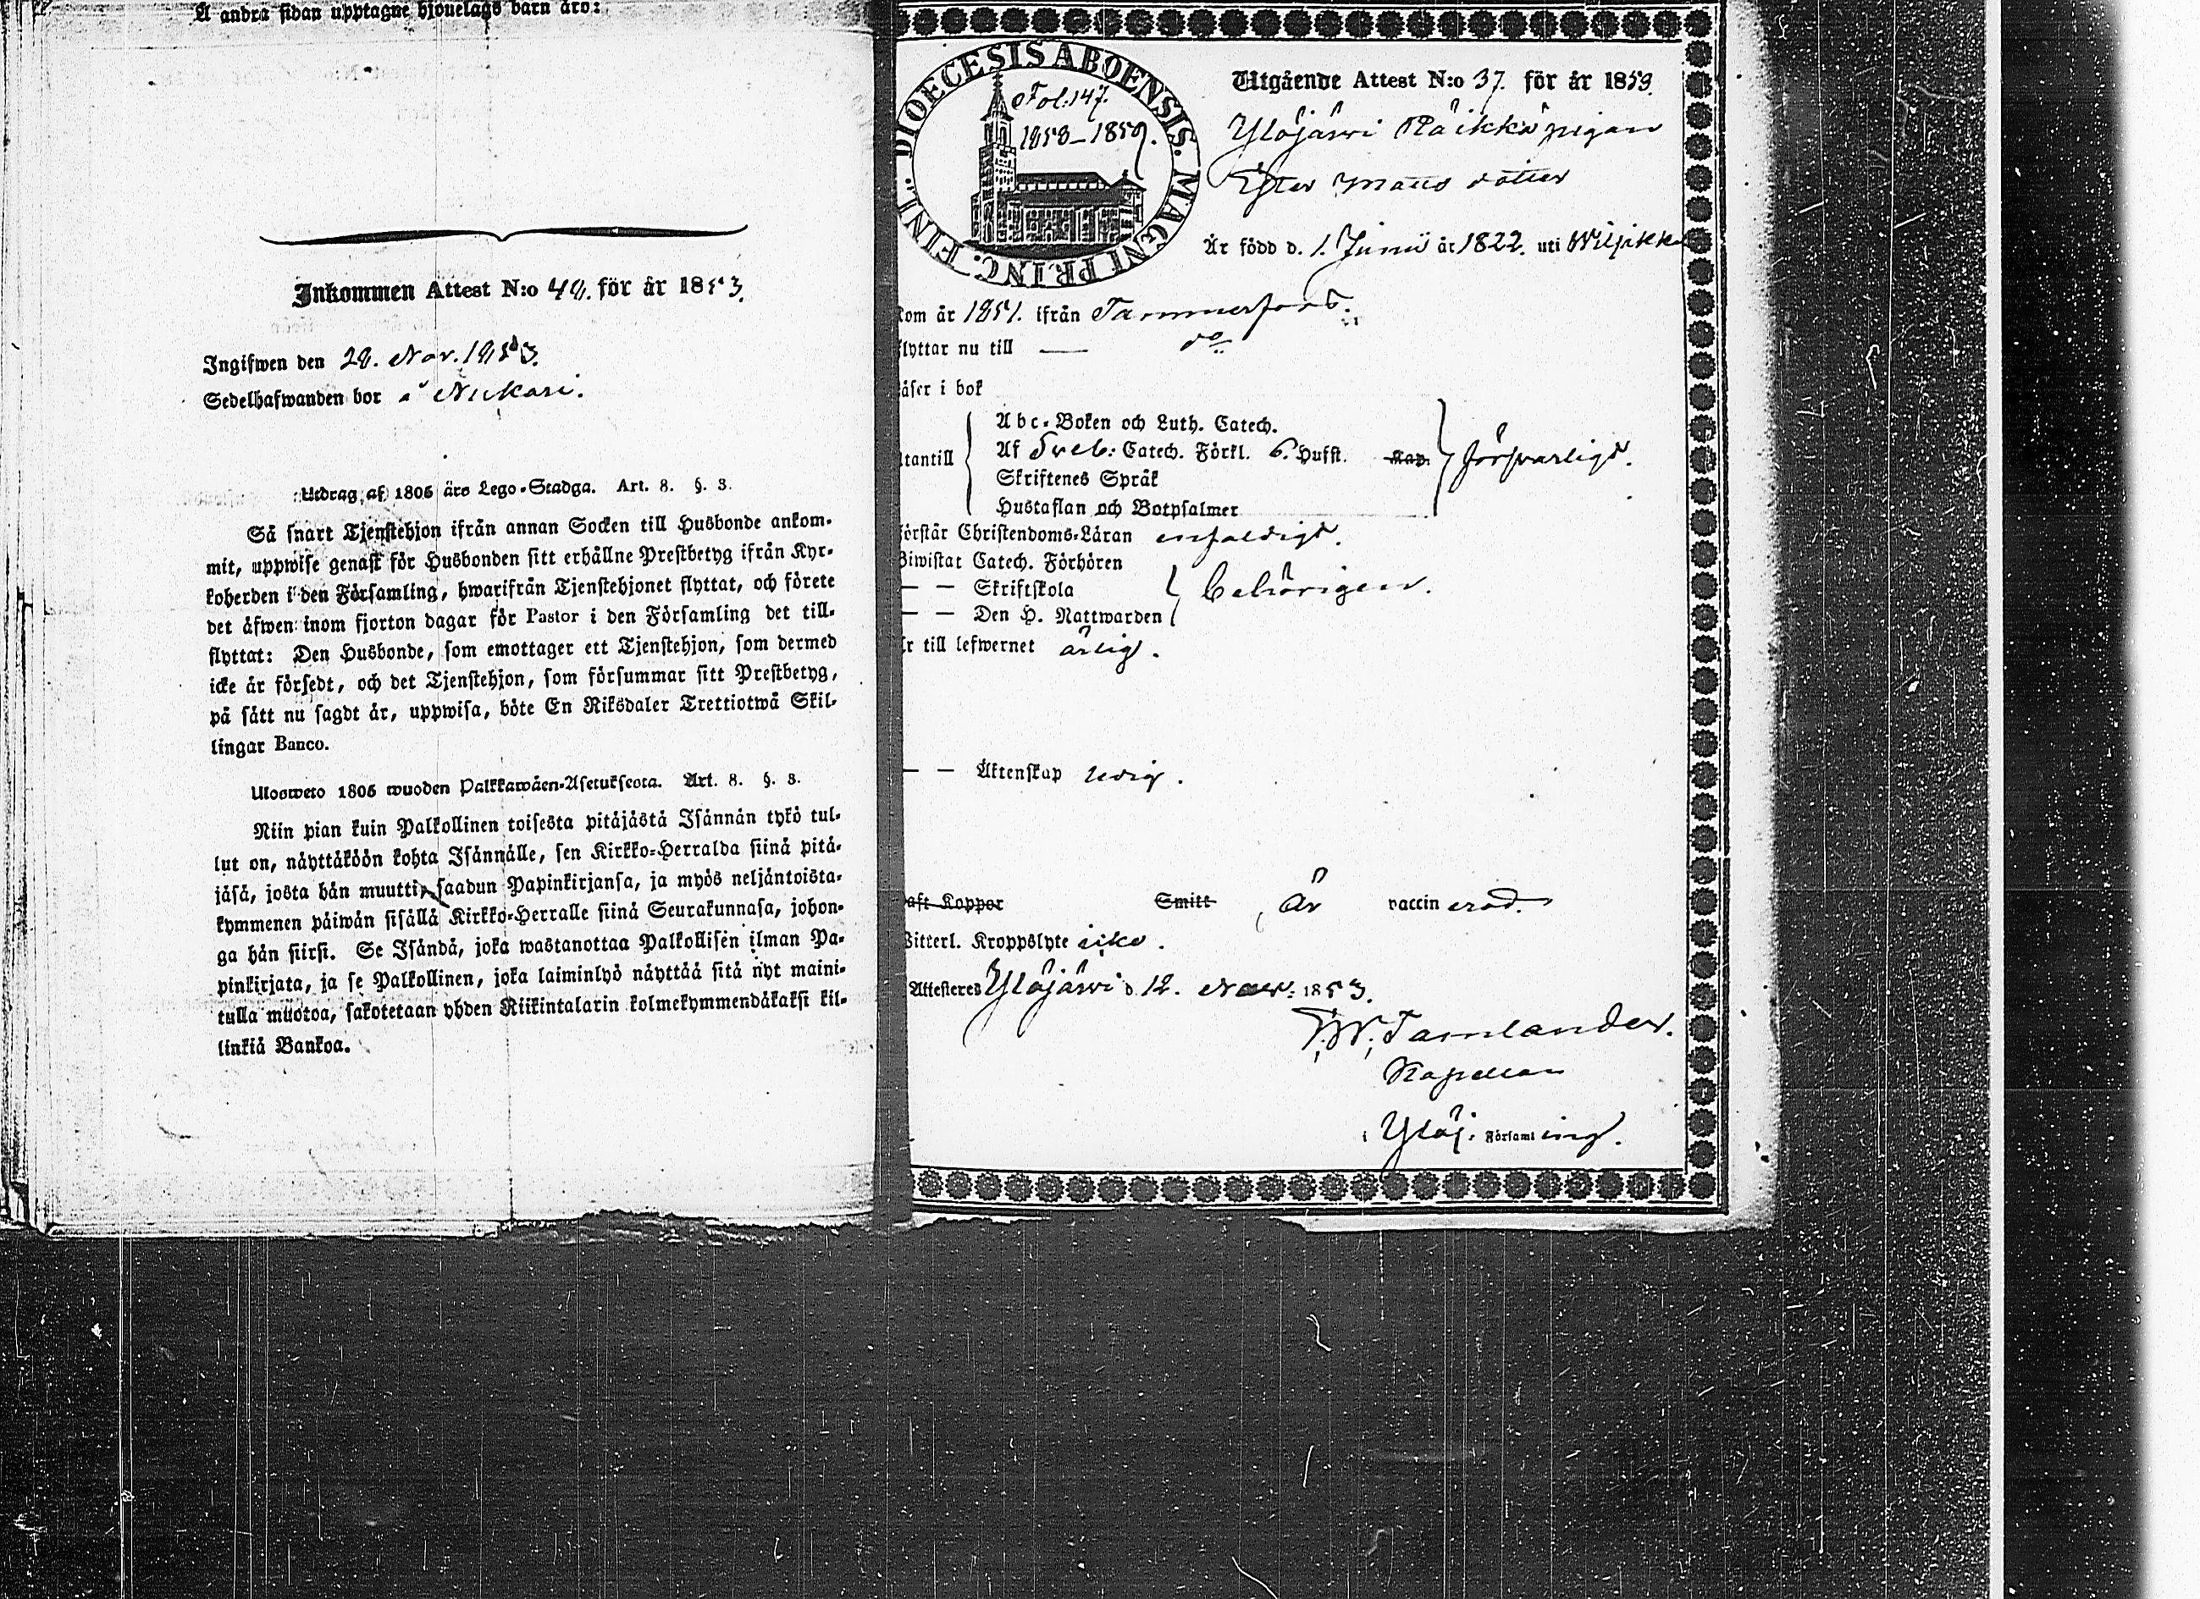 Å andra sidan upptagne hjonelags barn äro:
Inkommen Attest N:o 48. för år 1853.
Ingifwen den 28. Nov. 1853.
Sedelhafwanden bor å Nukari.
Utdrag af 1805 års Lego-Stadga. Art. 8. §. 3.
Så snart Tjenstehjon ifrån annan Socken till Husbonde ankom-
mit, uppwise genast för Husbonden sitt erhållne Prestbetyg ifrån Kyr-
koherden i den Församling, hwarifrån Tjenstehjonet flyttat, och förete
det äfwen inom fjorton dagar för Pastor i den Församling det till-
flyttat: Den Husbonde, som emottager ett Tjenstehjon, som dermed
icke är försedt, och det Tjenstehjon, som försummar sitt Prestbetyg,
på sätt nu sagdt är, uppwisa, böte En Riksdaler Trettiotwå Skil-
lingar Banco.
Uloswето 1805 wuoden Palkkawäen-Asetuksesta. Art. 8. §. 3.
Niin pian kuin Palkollinen toisesta pitäjästä Isännän tykö tul-
lut on, näyttäköön kohta Isännälle, sen Kirkko-Herralda siinä pitä-
jäsä, josta hän muutti, saadun Papinkirjansa, ja myös neljäntoista-
kymmenen päiwän sisällä Kirkko-Herralle siinä Seurakunnasa, johon-
ga hän siirsi. Se Isändä, joka wastanottaa Palkollisen ilman Pa-
pinkirjata, ja se Palkollinen, joka laiminlyö näyttää sitä nyt maini-
tulla muotoa, sakotetaan yhden Riikintalarin kolmekymmendäkaksi kil-
linkiä Bankoa.
DIOECESIS ABOENSIS. MAGNI PRINC. FINL.
Fol. 147.
1853–1859.
Utgående Attest N:o 37. för år 1853.
Ylöjärvi Räikkä pigan
Ester Matts dotter
Är född d. 1. Junii år 1822. uti Wiljakka
kom år 1851. ifrån Tammerfors.
flyttar nu till — do
läser i bok
utantill
Abc-Boken och Luth. Catech.
Af Sveb: Catech. Förkl. 6. Hufst. Kap.
Skriftenes Språk
Hustaflan och Botpsalmer
försvarligt.
förstår Christendoms-Läran enfaldigt.
Biwistat Catech. Förhören
— — Skriftskola
— — Den H. Nattwarden
behörigen.
är till lefwernet ärlig.
— — Äktenskap ledig.
Haft Koppor Smitt Är vaccin erad.
Witterl. Kroppslyte icke.
Attesteres Ylöjärvi d. 12. Nov: 1853.
Tamlander.
Kapellan
i Ylöj. Församl ing.